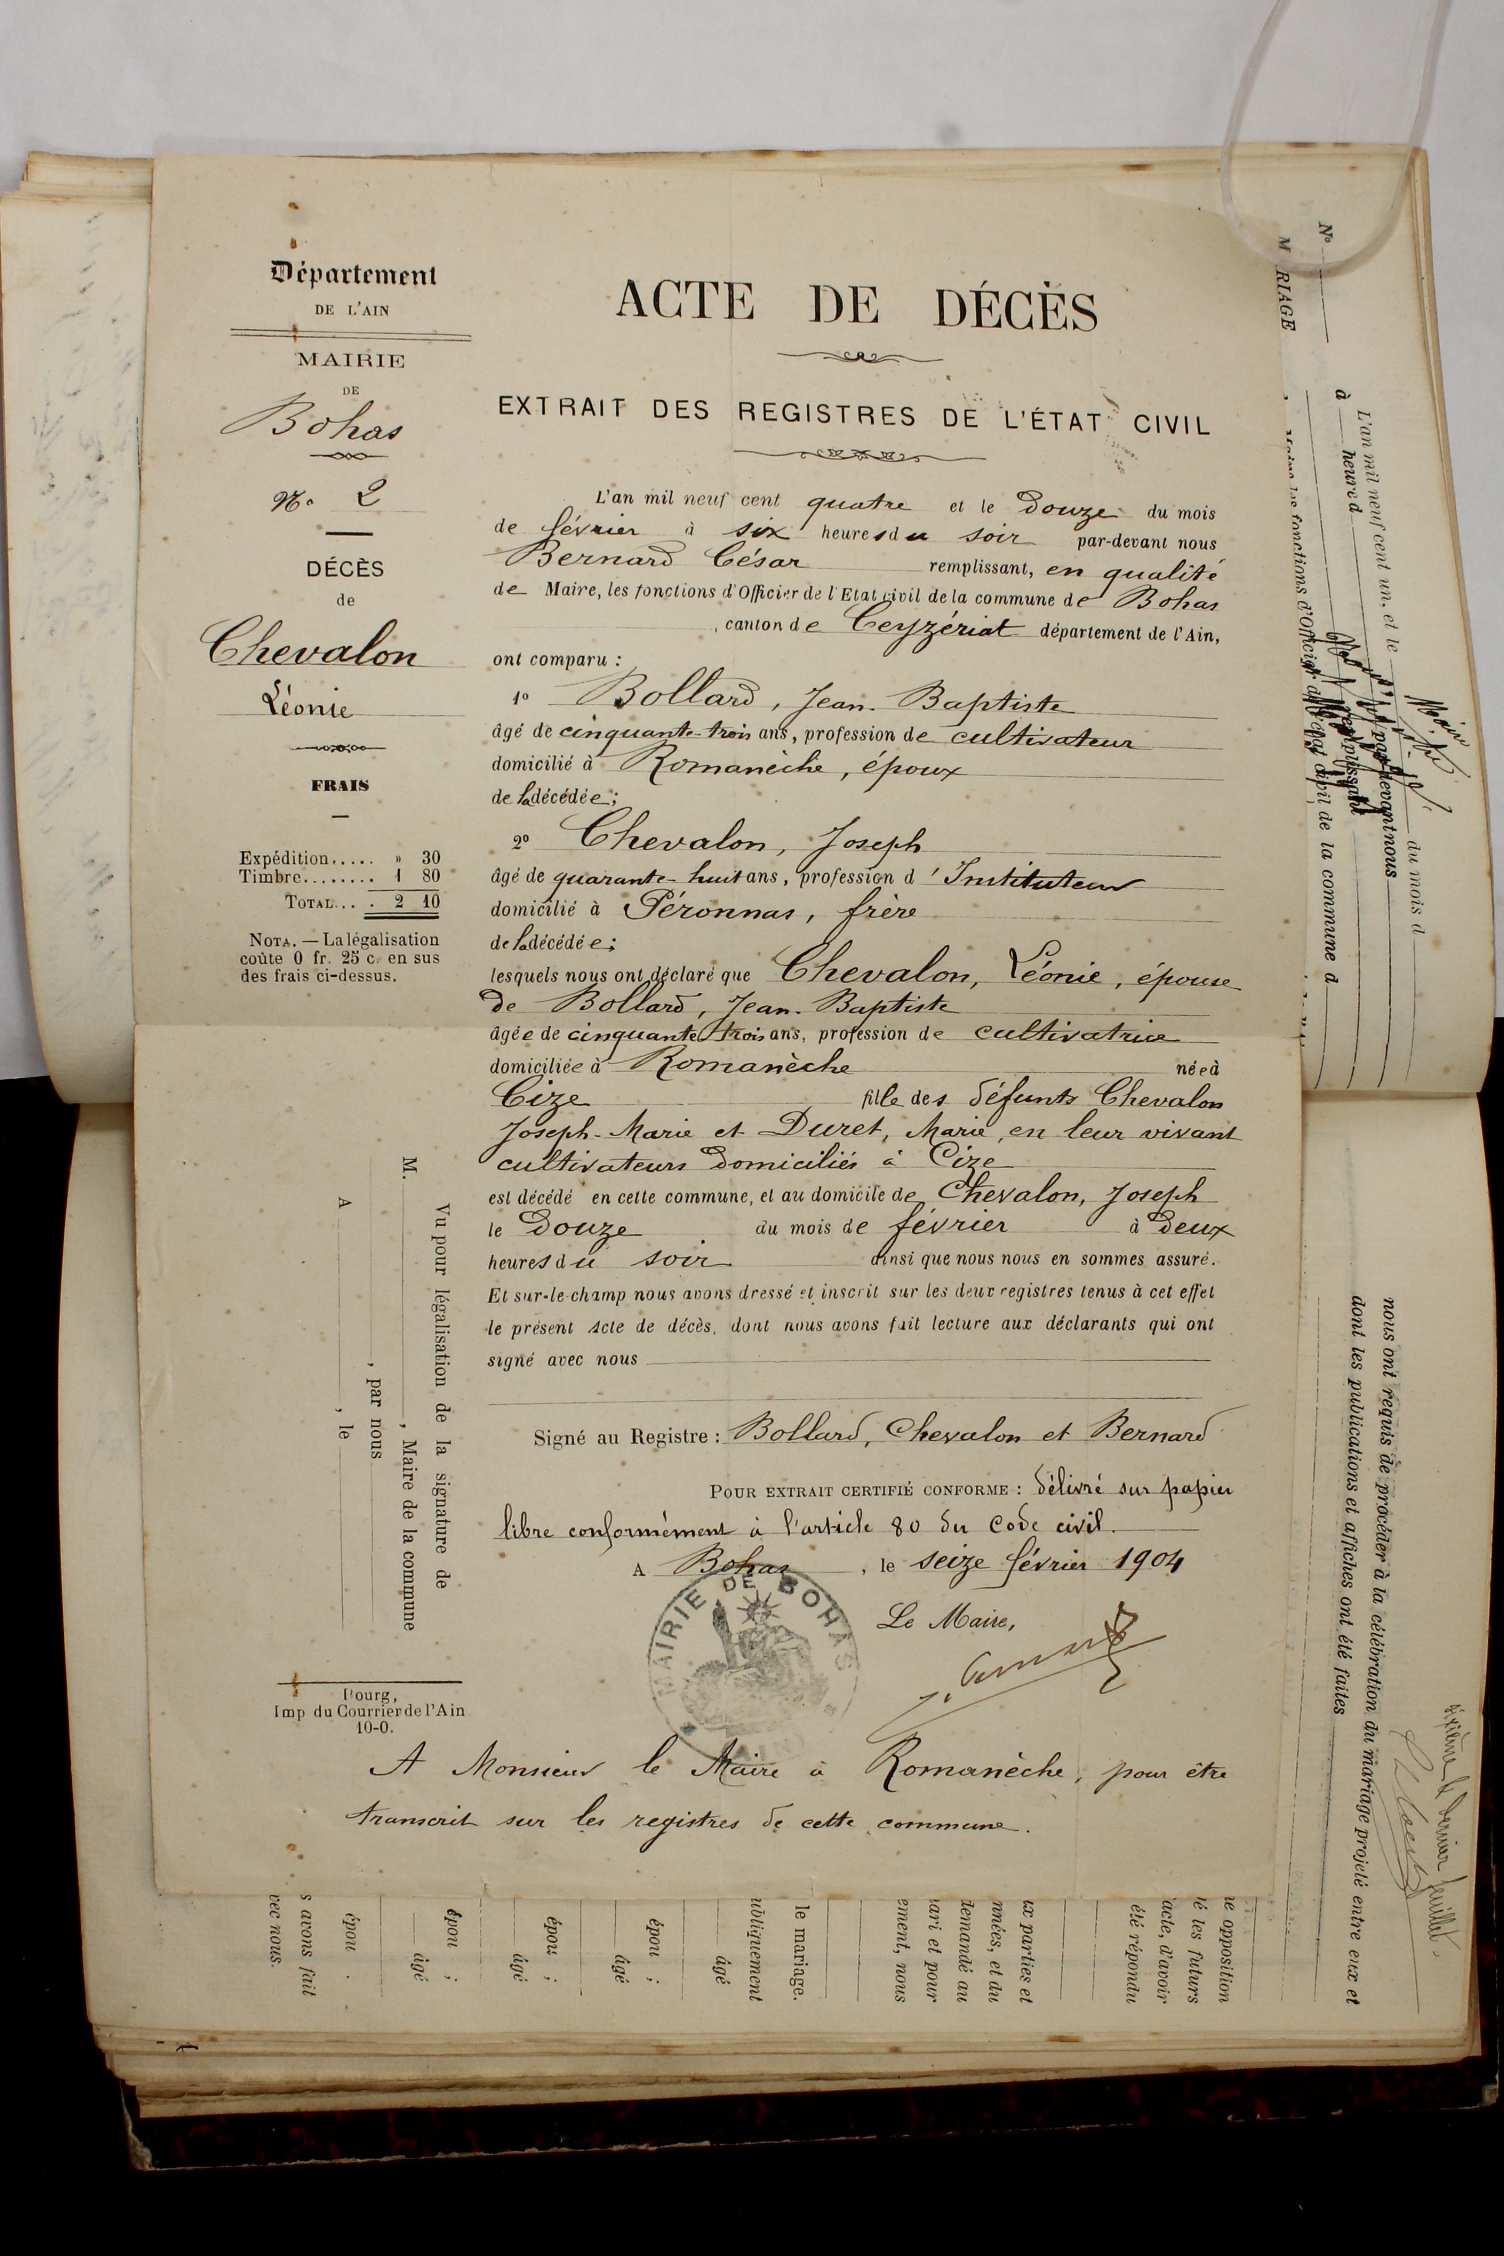 Département
DE L'AIN
MAIRIE
DE
Bohas
No 2
DÉCÈS
de
Chevalon
Léonie
FRAIS
Expédition..... » 30
Timbre........ 1 80
TOTAL.... 2 10
NOTA. — La légalisation
coûte 0 fr. 25 c. en sus
des frais ci-dessus.
ACTE DE DÉCÈS
EXTRAIT DES REGISTRES DE L'ÉTAT CIVIL
L'an mil neuf cent quatre et le douze du mois
de février à six heures du soir par-devant nous
Bernard César remplissant, en qualité
de Maire, les fonctions d'Officier de l'Etat civil de la commune de Bohas
, canton de Ceyzériat département de l'Ain,
ont comparu :
1o Bollard, Jean-Baptiste
âgé de cinquante-trois ans, profession de cultivateur
domicilié à Romanèche, époux
de la décédée;
2o Chevalon, Joseph
âgé de quarante-huit ans, profession d'Instituteur
domicilié à Péronnas, frère
de la décédée;
lesquels nous ont déclaré que Chevalon, Léonie, épouse
de Bollard, Jean-Baptiste
âgée de cinquante trois ans, profession de cultivatrice
domiciliée à Romanèche née à
Cize fille des défunts Chevalon
Joseph-Marie et Duret, Marie, en leur vivant
cultivateurs domiciliés à Cize
est décédé en cette commune, et au domicile de Chevalon, Joseph
le douze du mois de février à deux
heures du soir ainsi que nous nous en sommes assuré.
Et sur-le-champ nous avons dressé et inscrit sur les deux registres tenus à cet effet
le présent Acte de décès, dont nous avons fait lecture aux déclarants qui ont
signé avec nous
Signé au Registre : Bollard, Chevalon et Bernard
POUR EXTRAIT CERTIFIÉ CONFORME : délivré sur papier
libre conformément à l'article 80 du Code civil.
A Bohas, le seize février 1904
Le Maire,
MAIRIE DE BOHAS
AIN
Vu pour légalisation de la signature de
M. , Maire de la commune
, par nous
A , le
Bourg,
Imp du Courrier de l'Ain
10-0.
A Monsieur le Maire à Romanèche, pour être
transcrit sur les registres de cette commune.
No
M RIAGE
L'an mil neuf cent un, et le du mois d
à heure d par devant nous
remplissant
les fonctions d'Officier de l'état civil de la commune d
nous ont requis de procéder à la célébration du mariage projeté entre eux et
dont les publications et affiches ont été faites
dernier feuillet.
ne opposition
é les futurs
acte, d'avoir
été répondu
ux parties et
nnées, et du
demandé au
ari et pour
ement, nous
le mariage.
ubliquement
âgé
épou ;
âgé
épou ;
âgé
épou ;
âgé
épou .
s avons fait
vec nous.